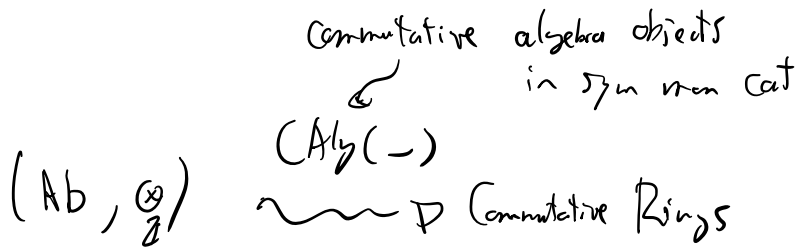 Commutative algebra objects
in sym mon cat
CAlg(–)
(Ab, ⊗ℤ) ⇝ Commutative Rings